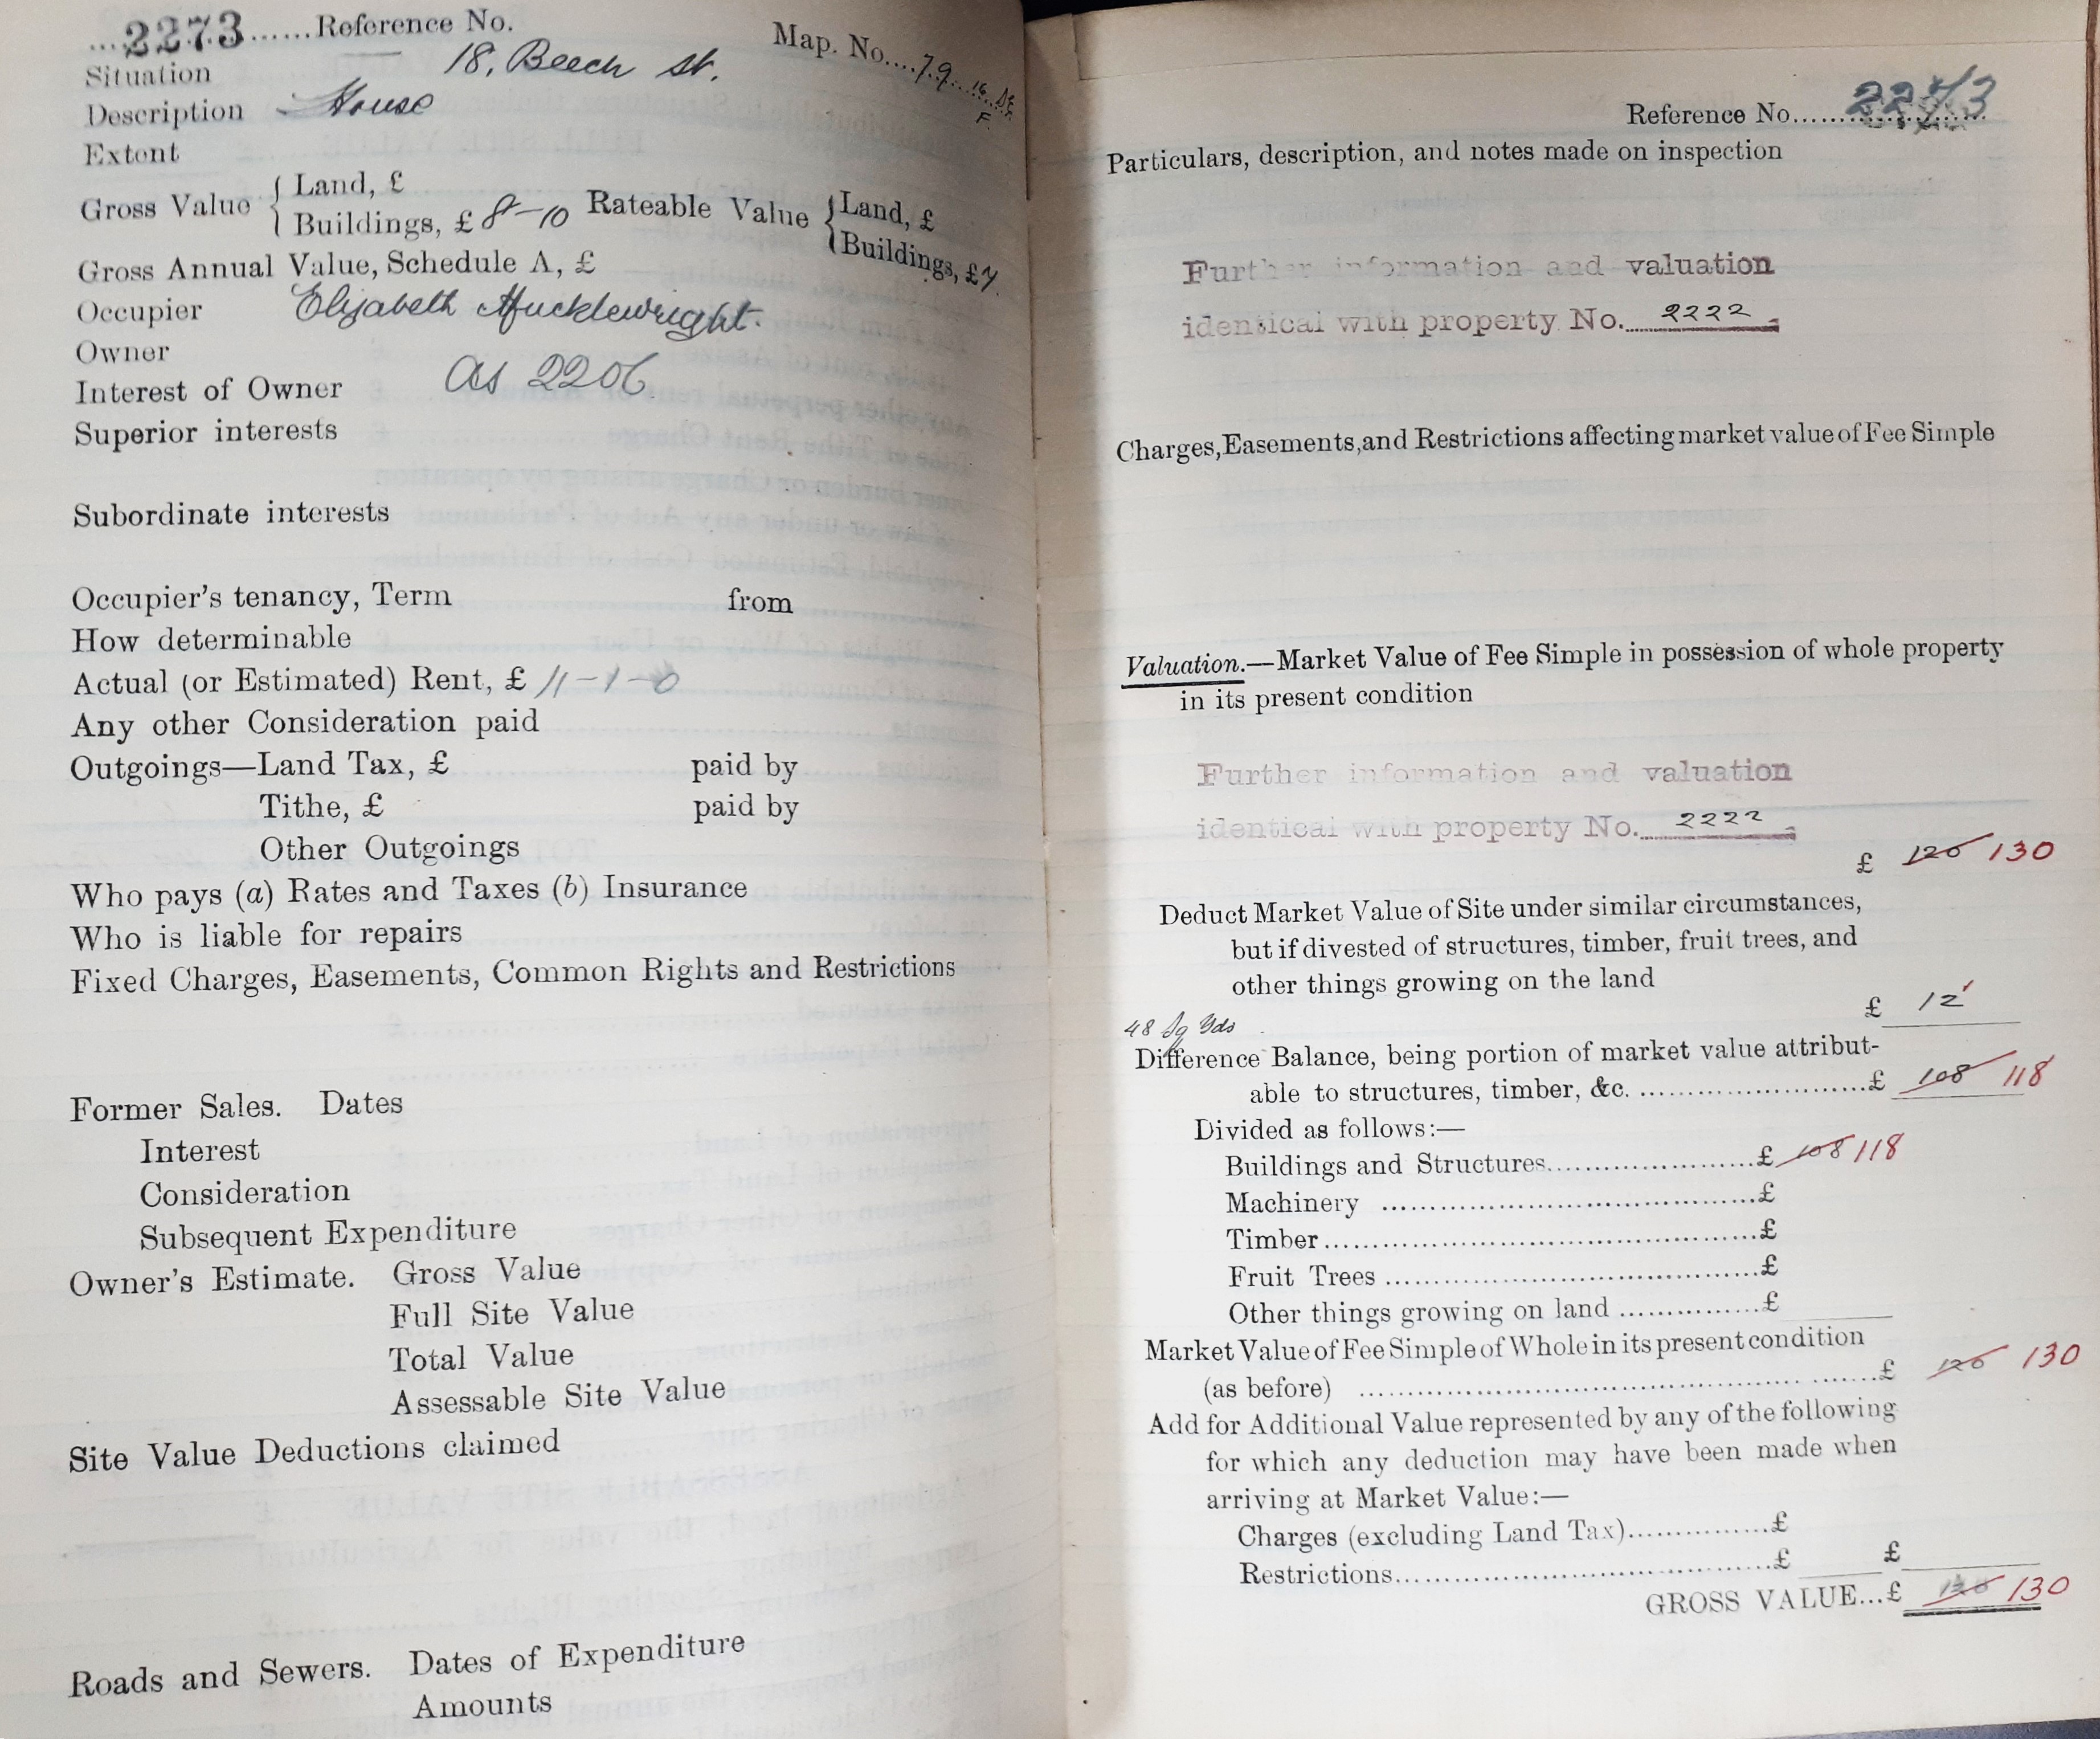 ...2273......Reference No.
Map. No....79...16...
F.
Situation 18, Beech St.
Description House
Extent
Gross Value { Land, £
Buildings, £ 8-10 Rateable Value { Land, £
Buildings, £7.
Gross Annual Value, Schedule A, £
Occupier Elizabeth Mucklewright.
Owner
Interest of Owner As 2206.
Superior interests
Subordinate interests
Occupier's tenancy, Term from
How determinable
Actual (or Estimated) Rent, £ 11-1-0
Any other Consideration paid
Outgoings—Land Tax, £ paid by
Tithe, £ paid by
Other Outgoings
Who pays (a) Rates and Taxes (b) Insurance
Who is liable for repairs
Fixed Charges, Easements, Common Rights and Restrictions
Former Sales. Dates
Interest
Consideration
Subsequent Expenditure
Owner's Estimate. Gross Value
Full Site Value
Total Value
Assessable Site Value
Site Value Deductions claimed
Roads and Sewers. Dates of Expenditure
Amounts
Reference No...2273
Particulars, description, and notes made on inspection
Further information and valuation
identical with property No. 2222
Charges, Easements, and Restrictions affecting market value of Fee Simple
Valuation.—Market Value of Fee Simple in possession of whole property
in its present condition
Further information and valuation
identical with property No. 2222
£ 120 130
Deduct Market Value of Site under similar circumstances,
but if divested of structures, timber, fruit trees, and
other things growing on the land
£ 12
48 Sq Yds
Difference Balance, being portion of market value attribut-
able to structures, timber, &c. ........................£ 108 118
Divided as follows:—
Buildings and Structures........................£ 108 118
Machinery ........................£
Timber........................£
Fruit Trees ........................£
Other things growing on land ...............£
Market Value of Fee Simple of Whole in its present condition
(as before) ........................£ 120 130
Add for Additional Value represented by any of the following
for which any deduction may have been made when
arriving at Market Value:—
Charges (excluding Land Tax)...............£
Restrictions........................£ £
GROSS VALUE...£ 120 130